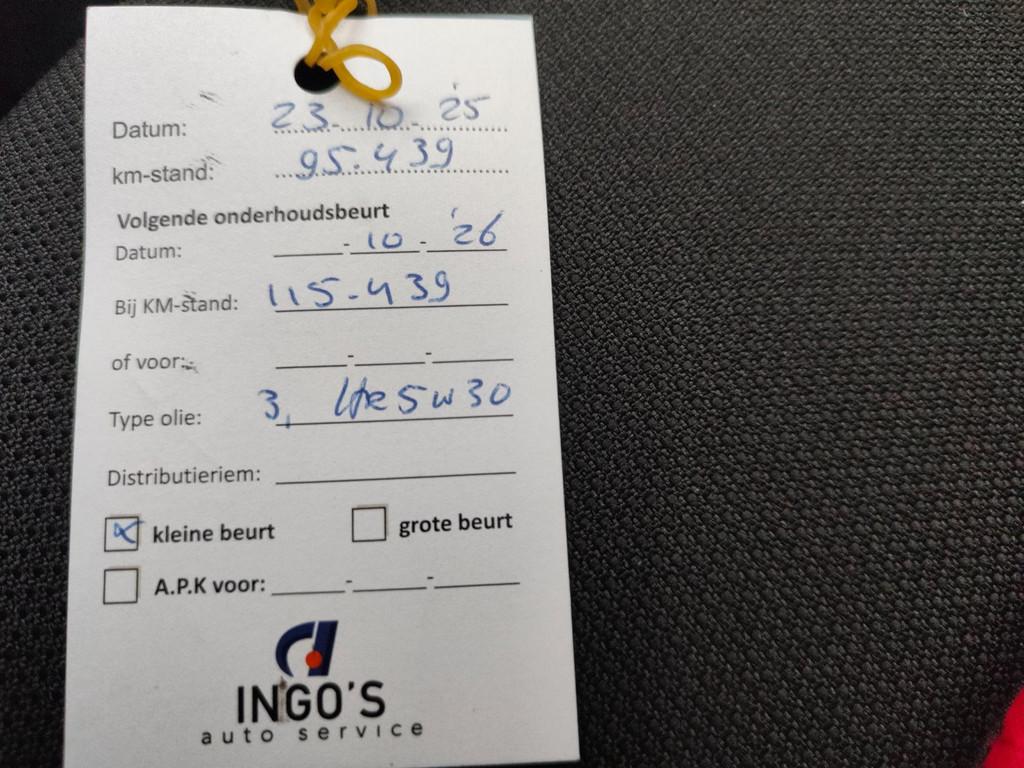 Datum: 23-10-'25
km-stand: 95.439
Volgende onderhoudsbeurt
Datum: -10-'26
Bij KM-stand: 115.439
of voor: - -
Type olie: 3, ltr 5w30
Distributieriem:
kleine beurt grote beurt
A.P.K voor: - -
INGO'S
auto service